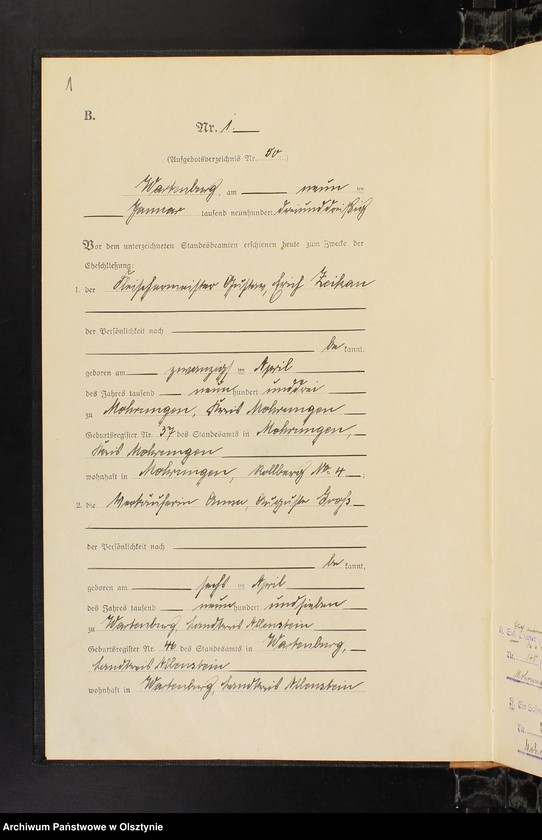 1
B.
Nr. 1.
(Aufgebotsverzeichnis Nr. 50.)
Wartenburg, am neun ten
Januar tausend neunhundert dreiunddreißig
Vor dem unterzeichneten Standesbeamten erschienen heute zum Zwecke der
Eheschließung:
1. der Fleischermeister Gustav, Erich
der Persönlichkeit nach
be kannt,
geboren am zwanzigsten April
des Jahres tausend neun hundert unddrei
zu Mohrungen, Kreis Mohrungen
Geburtsregister Nr. 37 des Standesamts in Mohrungen,
Kreis Mohrungen
wohnhaft in Mohrungen, Nr. 4
2. die Verkäuferin Anna, Auguste Groß
der Persönlichkeit nach
be kannt,
geboren am sechsten April
des Jahres tausend neun hundert undsieben
zu Wartenburg, Landkreis Allenstein
Geburtsregister Nr. 46 des Standesamts in Wartenburg,
Landkreis Allenstein
wohnhaft in Wartenburg, Landkreis Allenstein
Archiwum Państwowe w Olsztynie